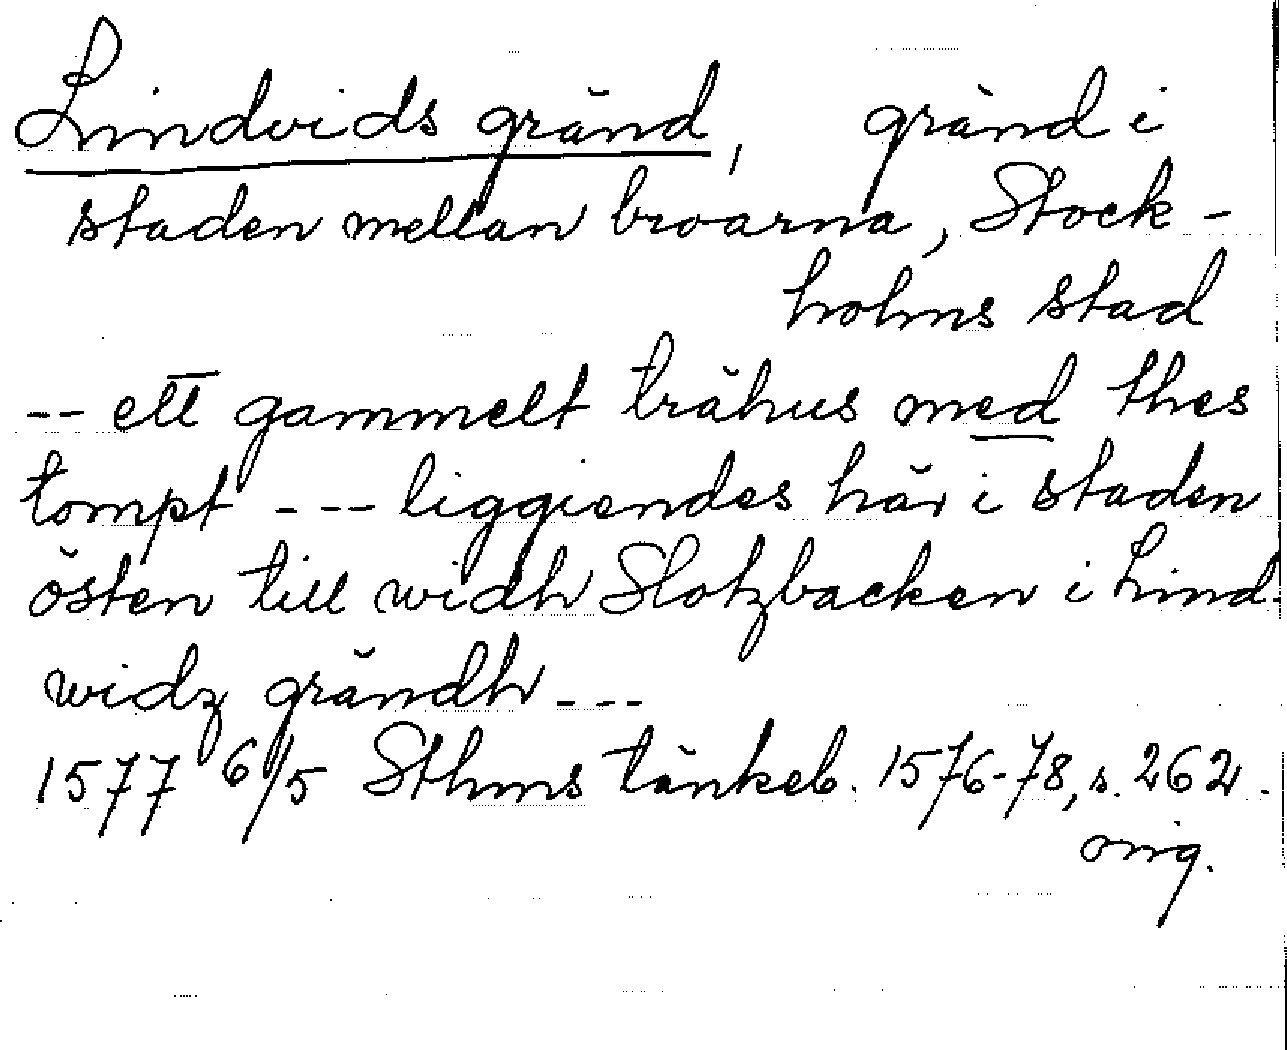 Lindvids gränd, gränd i
staden mellan broarna, Stock-
holms stad
-- ett gammelt trähus med thes
tompt --- liggiendes här i staden
östen till widh Slotzbacken i Lind-
widz grändh ---
1577 6/5 Sthms tänkeb. 1576-78, s. 262.
orig.